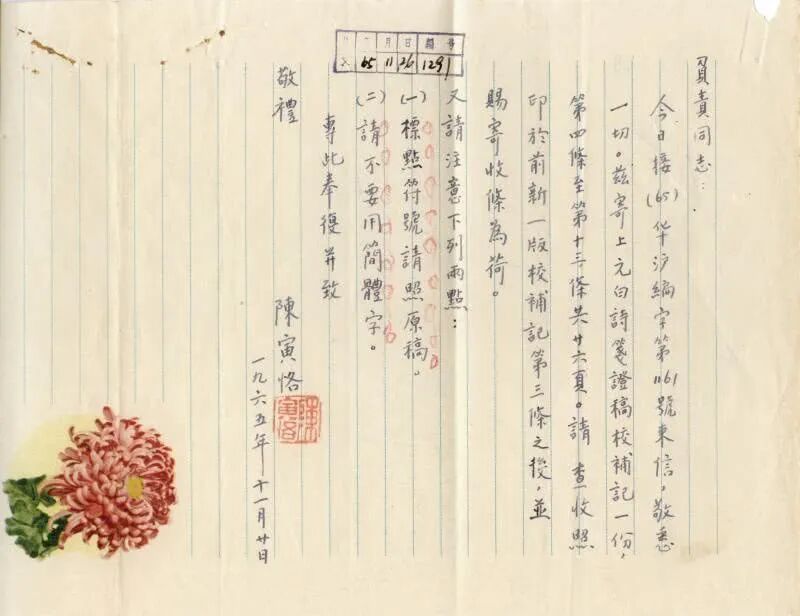 負責同志:
今日接(65)华沪編字第1161號來信,敬悉
一切。茲寄上元白詩箋證稿校補記一份,
第四條至第十三條共廿六頁。請 查收照
印於前新一版校補記第三條之後,並
賜寄收條為荷。
又請注意下列兩點:
(一)標點符號請照原稿。
(二)請不要用簡體字。
專此奉復并致
敬禮
陳寅恪
陳寅恪
一九六五年十一月廿日
月 日 編 号
65 11 26 1291